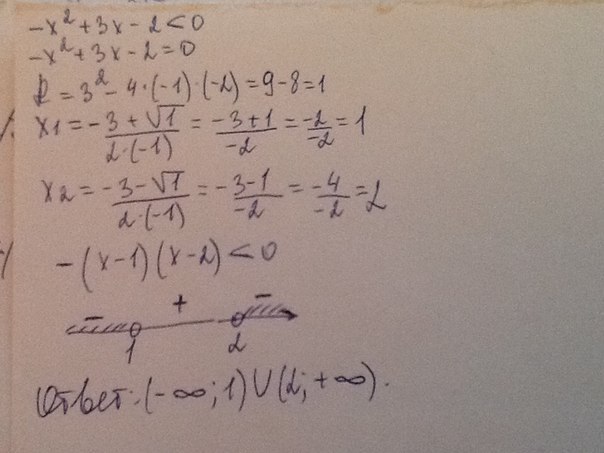 -x²+3x-2<0
-x²+3x-2=0
D=3²-4·(-1)·(-2)=9-8=1
x1=-3+√1/2·(-1)=-3+1/-2=-2/-2=1
x2=-3-√1/2·(-1)=-3-1/-2=-4/-2=2
-(x-1)(x-2)<0
- + -
1 2
Ответ:(-∞;1)∪(2;+∞).